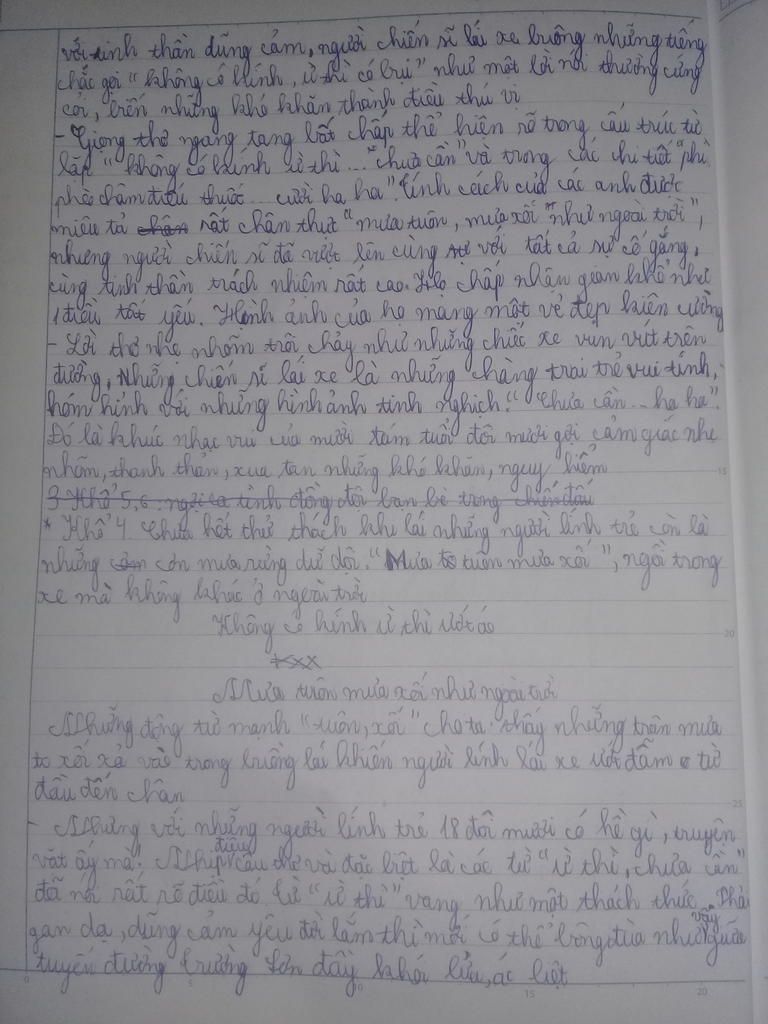 với tinh thần dũng cảm, người chiến sĩ lái xe buông những tiếng
chắc gọi "không có kính, ừ thì có bụi" như một lời nói thường cứng
cỏi, biến những khó khăn thành điều thú vị
- Giọng thơ ngang tang bất chấp thể hiện rõ trong cấu trúc từ
lặp "không có kính ừ thì... "chưa cần" và trong các chi tiết "phì
phèo châm điếu thuốc... cười ha ha". Tính cách của các anh được
miêu tả rất chân thực "mưa tuôn, mưa xối" "như ngoài trời",
nhưng người chiến sĩ đã vượt lên cùng với tất cả sự cố gắng,
cùng tinh thần trách nhiệm rất cao. Họ chấp nhận gian khổ như
1 điều tất yếu. Hình ảnh của họ mang một vẻ đẹp kiên cường
- Lời thơ nhẹ nhõm trôi chảy như những chiếc xe vun vút trên
đường, Những chiến sĩ lái xe là những chàng trai trẻ vui tính,
hóm hỉnh với những hình ảnh tinh nghịch. "Chưa cần... ha ha".
Đó là khúc nhạc vui của mười tám tuổi đôi mươi gợi cảm giác nhẹ
nhõm, thanh thản, xua tan những khó khăn, nguy hiểm
3 Khổ 5,6: ngợi ca tình đồng đội bạn bè trong chiến đấu
* Khổ 4 Chưa hết thử thách khi lái những người lính trẻ còn là
những cơn mưa rừng dữ dội. "Mưa tuôn mưa xối", ngồi trong
xe mà không khác ở ngoài trời
Không có kính ừ thì ướt áo
xxx
Mưa tuôn mưa xối như ngoài trời
Những động từ mạnh "tuôn, xối" cho ta thấy những trận mưa
to xối xả vào trong buồng lái khiến người lính lái xe ướt đẫm từ
đầu đến chân
- Nhưng với những người lính trẻ 18 đôi mươi có hề gì, truyện
vặt ấy mà! Nhịp điệu câu thơ và đặc biệt là các từ "ừ thì, chưa cần"
đã nói rất rõ điều đó từ "ừ thì" vang như một thách thức. Phải
gan dạ, dũng cảm yêu đời lắm thì mới có thể bông đùa như vậy giữa
tuyến đường Trường Sơn đầy khói lửa, ác liệt